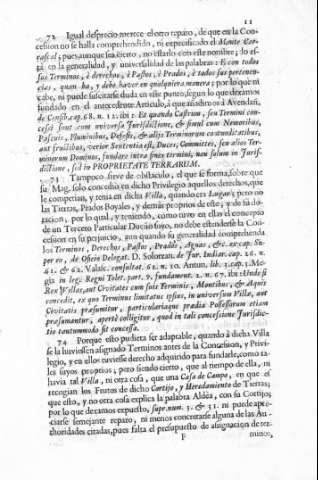 11
72 Igual desprecio merece el otro reparo, de que en la Con-
cession no se halla comprehendido, ni expecificado el Monte Car-
rascal; pues aunque sea cierto, no estarlo con este nombre; lo es-
tà en la generalidad, y universalidad de las palabras: E con todos
sus Terminos, è derechos, è Pastos, è Prados, è todas sus pertenen-
cias, quan ha, y debe haver en qualquiera manera; por lo que ni
cabe, ni puede suscitarse duda en este punto, segun lo que dexamos
fundado en el antecedente Articulo, à que añadimos à Avendañ.
de Cens. cap. 68. n. 11. ibi: Et quando Castrum, seu Termini con-
cessi sunt cum universa Jurisdictione, & simul cum Nemoribus,
Pascuis, Fluminibus, Defessis, & aliis Terminorum commoditatibus,
aut fruitibus, verior Sententia est, Duces, Committes, seu alios Ter-
minorum Dominos, fundare intra fines termini, non solum in Juris-
dictione, sed in PROPRIETATE TERRARUM.
73 Tampoco sirve de obstaculo, el que se forma, sobre que
su Mag. solo concedió en dicho Privilegio aquellos derechos, que
le competian, y tenia en dicha Villa, quando era Lugar, pero no
las Tierras, Prados Boyales, y demàs proprios de este, y de su do-
tacion, por lo qual, y teniendo, como tuvo en ellas el concepto
de un Tercero Particular Dueño suyo, no debe estenderse la Con-
cession en su perjuicio, aun quando su generalidad comprehenda
los Terminos, Derechos, Pastos, Prados, Aguas, &c. ex cap. Su-
per eo, de Officio Delegat. D. Solorzan. de Jur. Indiar. cap. 26. n.
61. & 62. Valasc. consultat. 61. n. 10. Antun. lib. 3. cap. Me-
gia in leg. Regni Tolet. part. 9. fundament. 2. n. 67. ibi: Unde si
Rex Villas, aut Civitates cum suis Terminis, Montibus, & Aquis
concedit, ex quo Terminus limitatus ipsius, in universum Villæ, aut
Civitatis præsumitur, particulariaque prædia Possessorum etiam
præsumantur, apertè colligitur, quod in tali concessione Jurisdic-
tio tantummodo sit concessa.
74 Porque esto pudiera ser adaptable, quando à dicha Villa
se la huviessen asignado Terminos antes de la Concession, y Privi-
legio, y en ellos tuviesse derecho adquirido para fundarle, como ta-
les suyos proprios; pero siendo cierto, que al tiempo de ella, ni
havia tal Villa, ni otra cosa, que una Casa de Campo, en que se
recogian los Frutos de dicho Cortijo, y Heredamiento de Tierras;
que esto, y no otra cosa explica la palabra Aldèa, con su Cortijo;
por lo que dexamos expuesto, supr. num. 3. & 31. ni puede apre-
ciarse semejante reparo, ni menos concretarse alguna de las Au-
thoridades citadas, pues falta el presupuesto de asignacion de ter-
F minos,